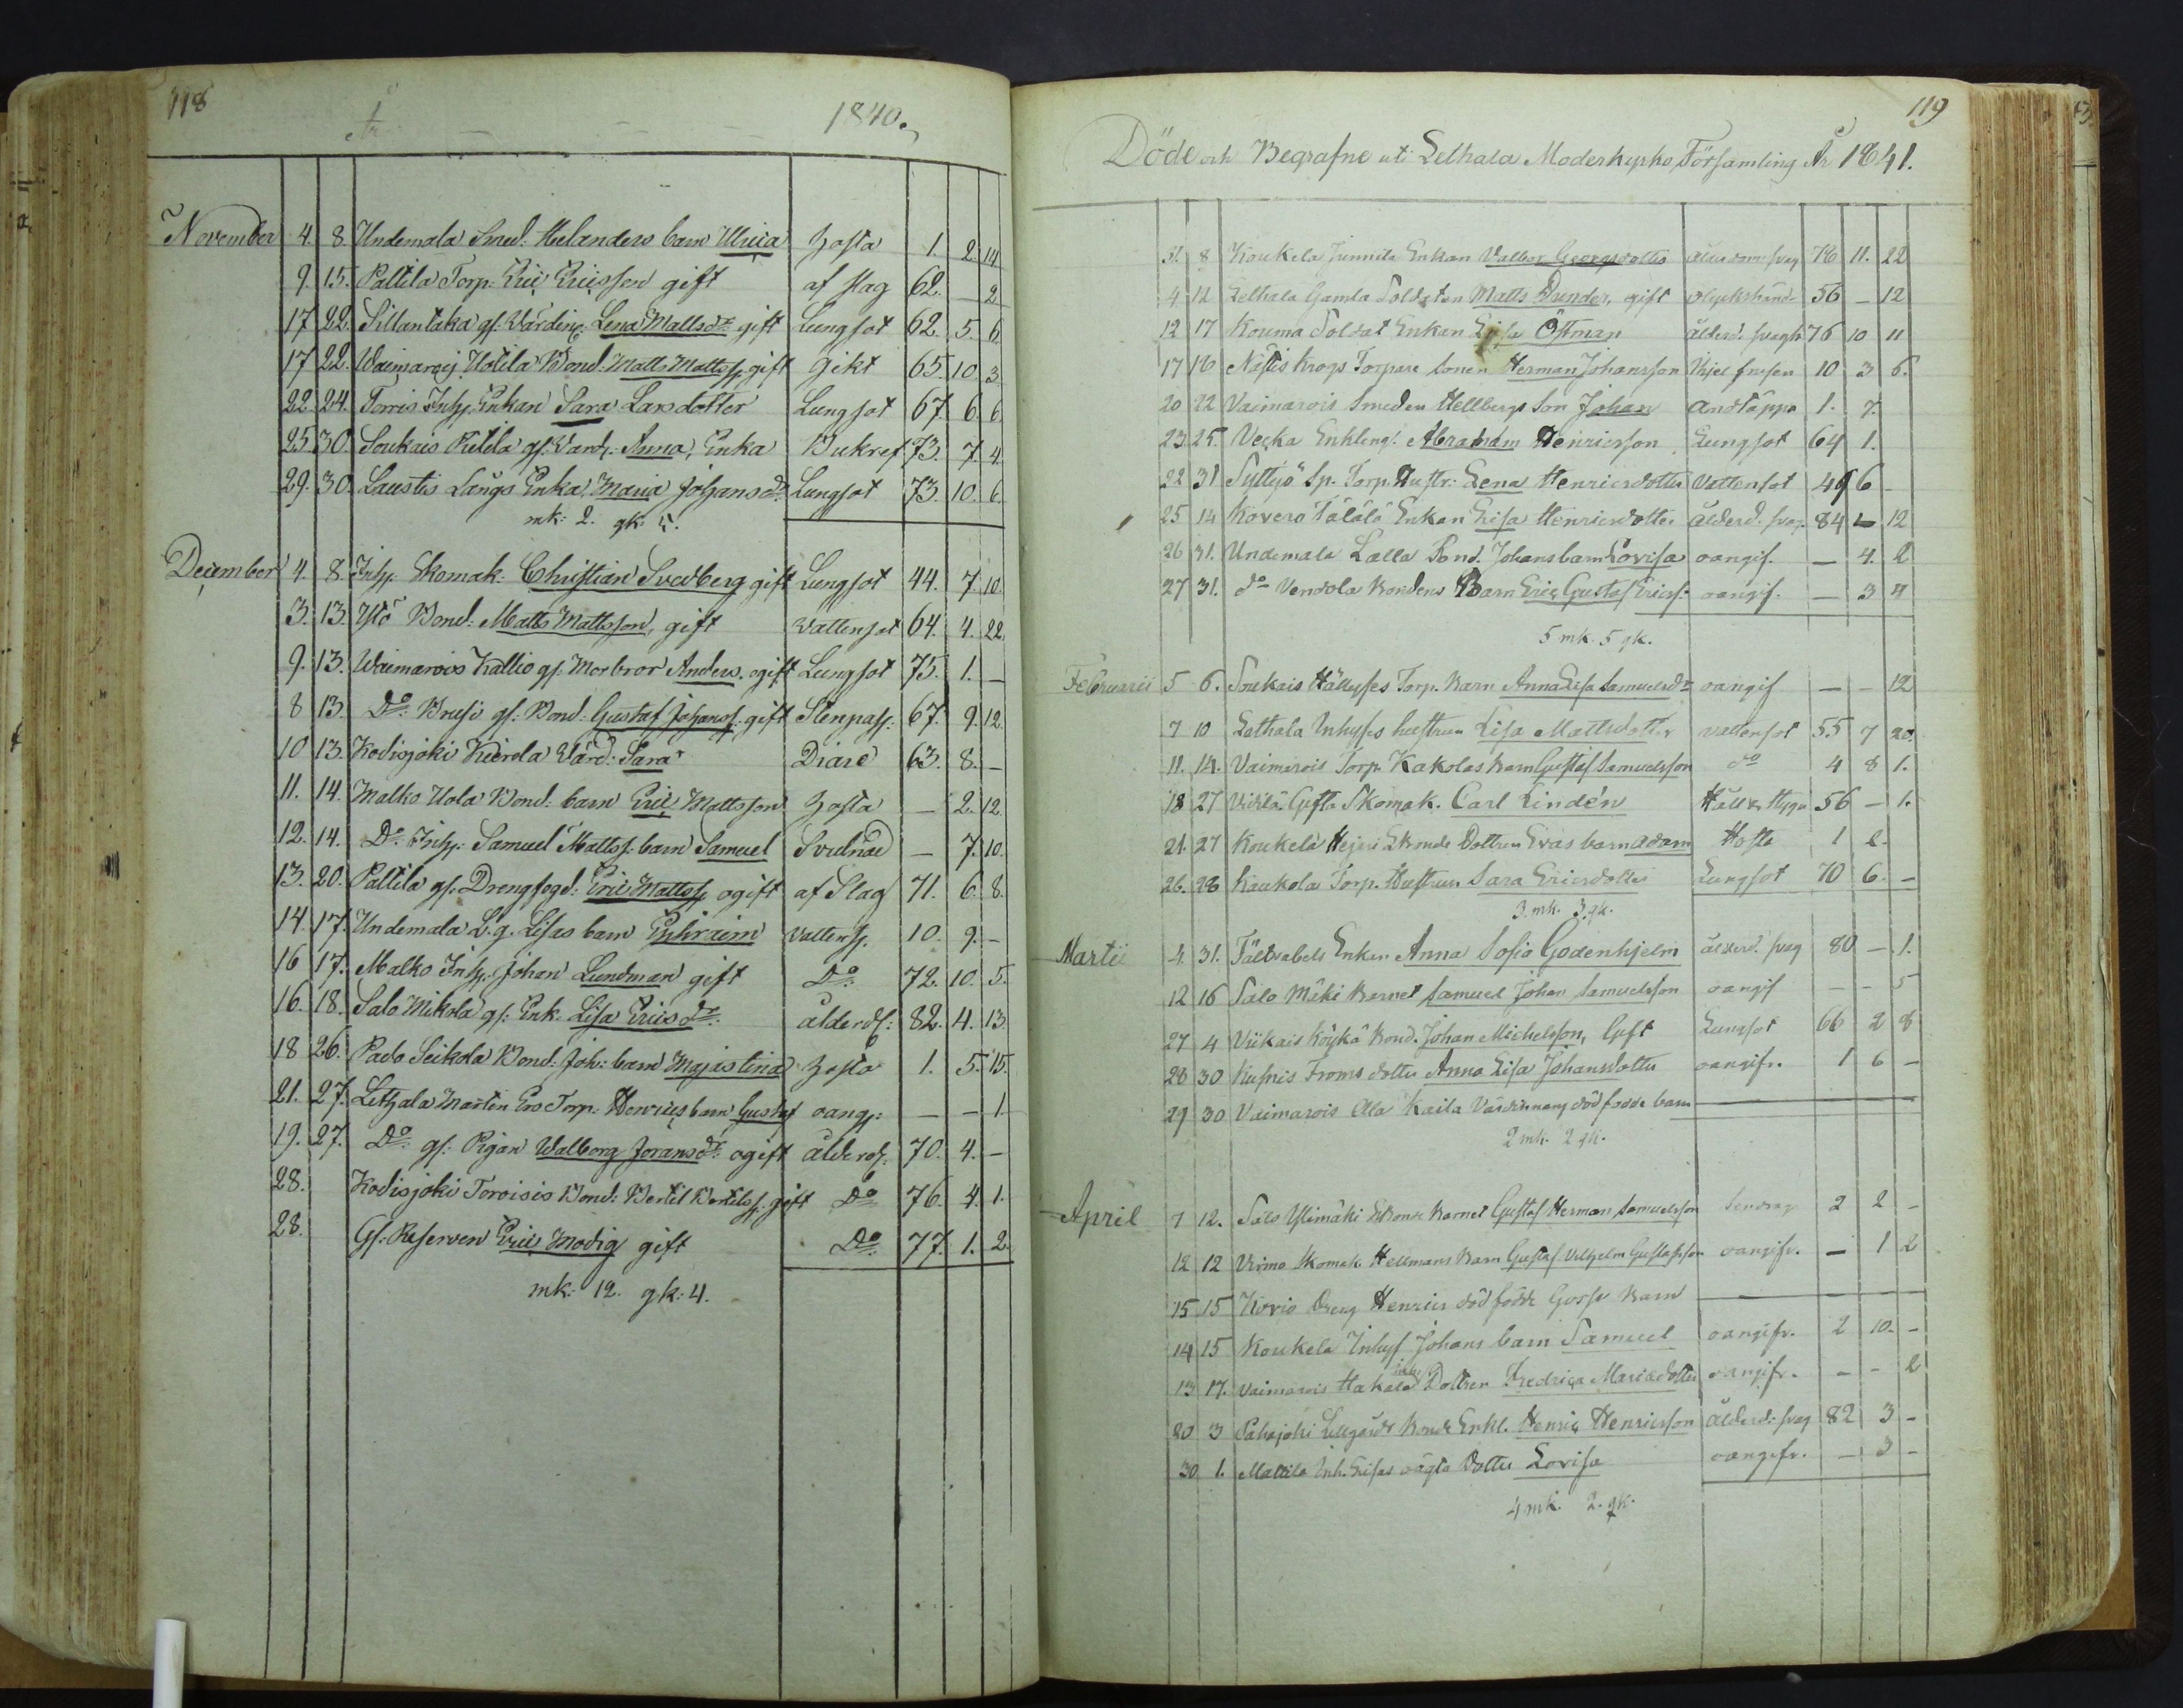 118
År 1840.
November 4. 8. Undemala Smed: Helanders barn Ulrica Hosta 1. 2. 14
9. 15. Paltila Torp: Eric Ericsson gift af slag 62. — 2.
17 22. Sillantaka gf. Värdin: Lena Mattsdr gift Lungsot 62. 5. 6.
17 22. Waimaroij Uotila Bond: Matts Mattss. gift Gikt 65. 10 3
22. 24. Torris Inh. Enkan Sara Larsdotter Lungsot 67. 6. 6.
25 30. Soukais Pietila gf. Värd: Anna, Enka Bukref 73. 7. 4.
29. 30. Laustis Långs Enka Maria Johansdr Lungsot 73. 10. 6.
mk: 2. gk: 5.
December 4. 8. Inh. Skomak: Christian Svedberg gift Lungsot 44. 7. 10.
3. 13. Ylö Bond: Matts Mattsson, gift Wattensot 64. 4. 22.
9. 13. Waimarois Kallio gf. Morbror Anders. ogift Lungsot 75. 1. —
8 13. Do: Brusi gf. Bond: Gustaf Johanss. gift Stenpass: 67. 9. 12.
10 13. Kodisjoki Kierola Värd: Sara Diaré 63. 8. —
11. 14. Malko Uola Bond: barn Eric Mattsson Hosta — 2. 12.
12. 14. Do: Inh. Samuel Mattss. barn Samuel Svulnad — 7. 10.
13. 20. Paltila gf. Drengfogd: Eric Mattss. ogift af Slag 71. 6. 8.
14. 17. Undemala L.g. Lisas barn Ephraim Vattens. 10. 9. —
16 17. Malko Inh. Johan Lundman gift Do: 72. 10. 5.
16. 18. Salo Mikola gf: Enk. Lisa Ericsdr ålderds: 82. 4. 13.
18 26. Pado Seikola Bond: Joh: barn Majastina Hosta 1. 5. 15.
21. 27. Lethala Martin Ero Torp: Henrics barn Gustaf oang: — — 1.
19. 27. Do: gf: Pigan Walborg Joransdr ogift ålderds. 70. 4. —
28. Kodisjoki Toroisis Bond: Bertil Bertilss. gift Do 76. 4. 1.
28. Gf. Reserven Eric Modig gift Do: 77. 1. 2.
mk: 12. gk: 4.
119
Döde och Begrafne uti Lethala Moderkyrko Församling År 1841.
31. 8 Koukela Junnila Enkan Valbor Georgsdotter ålderdoms svag 76 11. 22
4 12 Lethala Gamla Soldaten Matts Dunder, gift olyckshänd. 56 — 12
12 17 Kouma Soldat Enkan Lisa Östman ålderd. svagh 76 10 11
17 18 Nästis Krogs Torpare sonen Herman Johansson ihjel frusen 10 3 6.
20 22 Vaimarois Smeden Hellbergs Son Johan Andtäppa 1. 7.
23. 25. Vecka Enkling: Abraham Henricsson Lungsot 64 1.
22 31 Syttyö Sp. Torp. Hustr: Lena Henricsdotter Vattensot 49 6 —
25 14 Kovero Tälälä Enkan Lisa Henricsdotter ålderd. svag. 84 — 12
26 31. Undemala Lalla Bond. Johans barn Lovisa oangif. — 4. 2
27 31. do Vendola Bondens Barn Eric Gustaf Ericss: oangif. — 3 4
5 mk. 5 gk.
Februarii 5 6. Soukais Hällfses Torp. Barn Anna Lisa Samuelsdr oangif — — 12
7 10 Lethala Inhyses hustrun Lisa Mattsdotter vattensot 55 7 20.
11. 14. Vaimarois Torp. Kakolas Barn Gustaf Samuelsson do 4 8 1.
18 27 Gifta Skomak. Carl Lindén Håll & Stygn 56 — 1.
21. 27 Koukela Hejari Bonde Dottren Evas barn Adam Hosta 1 2.
26. 28 Koukola Torp. Hustrun Sara Ericsdotter Lungsot 70 6. —
3. mk. 3. gk.
Martii 4 31. Fältväbels Enkan Anna Sofia Godenhjelm ålderd. svag 80 — 1.
12 16 Salo Mäki Barnet Samuel Johan Samuelsson oangif — — 5
27 4 Viikais Köykä Bond. Johan Michelsson, Gift Lungsot 66 2 8
28 30 Kusnis Froms dotter Anna Lisa Johansdotter oangifv. 1 6 —
29 30 Vaimarois Ala Kaila Värdinnans död fodde barn
2 mk. 2 gk.
April 7 12. Salo Ylimäki Bonde Barnet Gustaf Herman Samuelsson Sendrag 2 2 —
12 12 Virmo Skomak Hellmans Barn Gustaf Vilhelm Gustafsson oangifv. — 1 2
15 15 Korvio Dreng Henrics död födde Gosse Barn
14 15 Koukela Inhys Johans barn Samuel oangifv. 2 10. —
13 17. Vaimarois Hakala Dottren Fredrica Mariædotter oangifv. — — 2
20 3 Pahajoki Lillgårds Bonde Enkl. Henric Henricsson ålderd: svag 82 3 —
30 1. Mattila Inh. Lisas oägta Dotter Lovisa oangifv. — 3 —
4 mk. 2. gk.